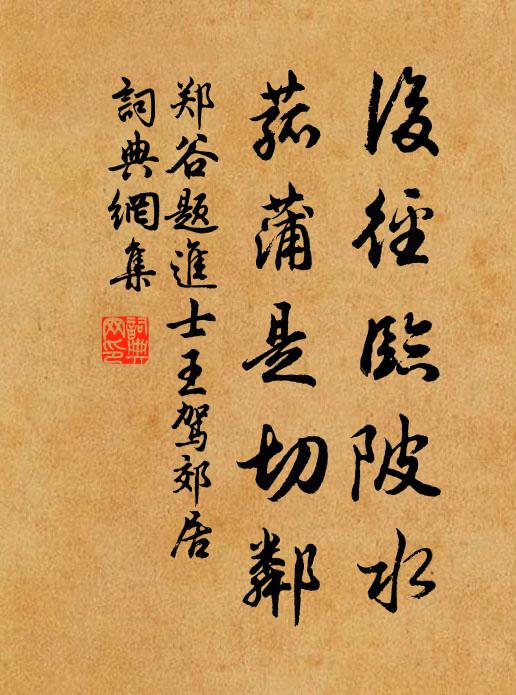 後徑臨陂水
菰蒲是切鄰
郑谷题進士王驾郊居
詞典網集
詞典
网印